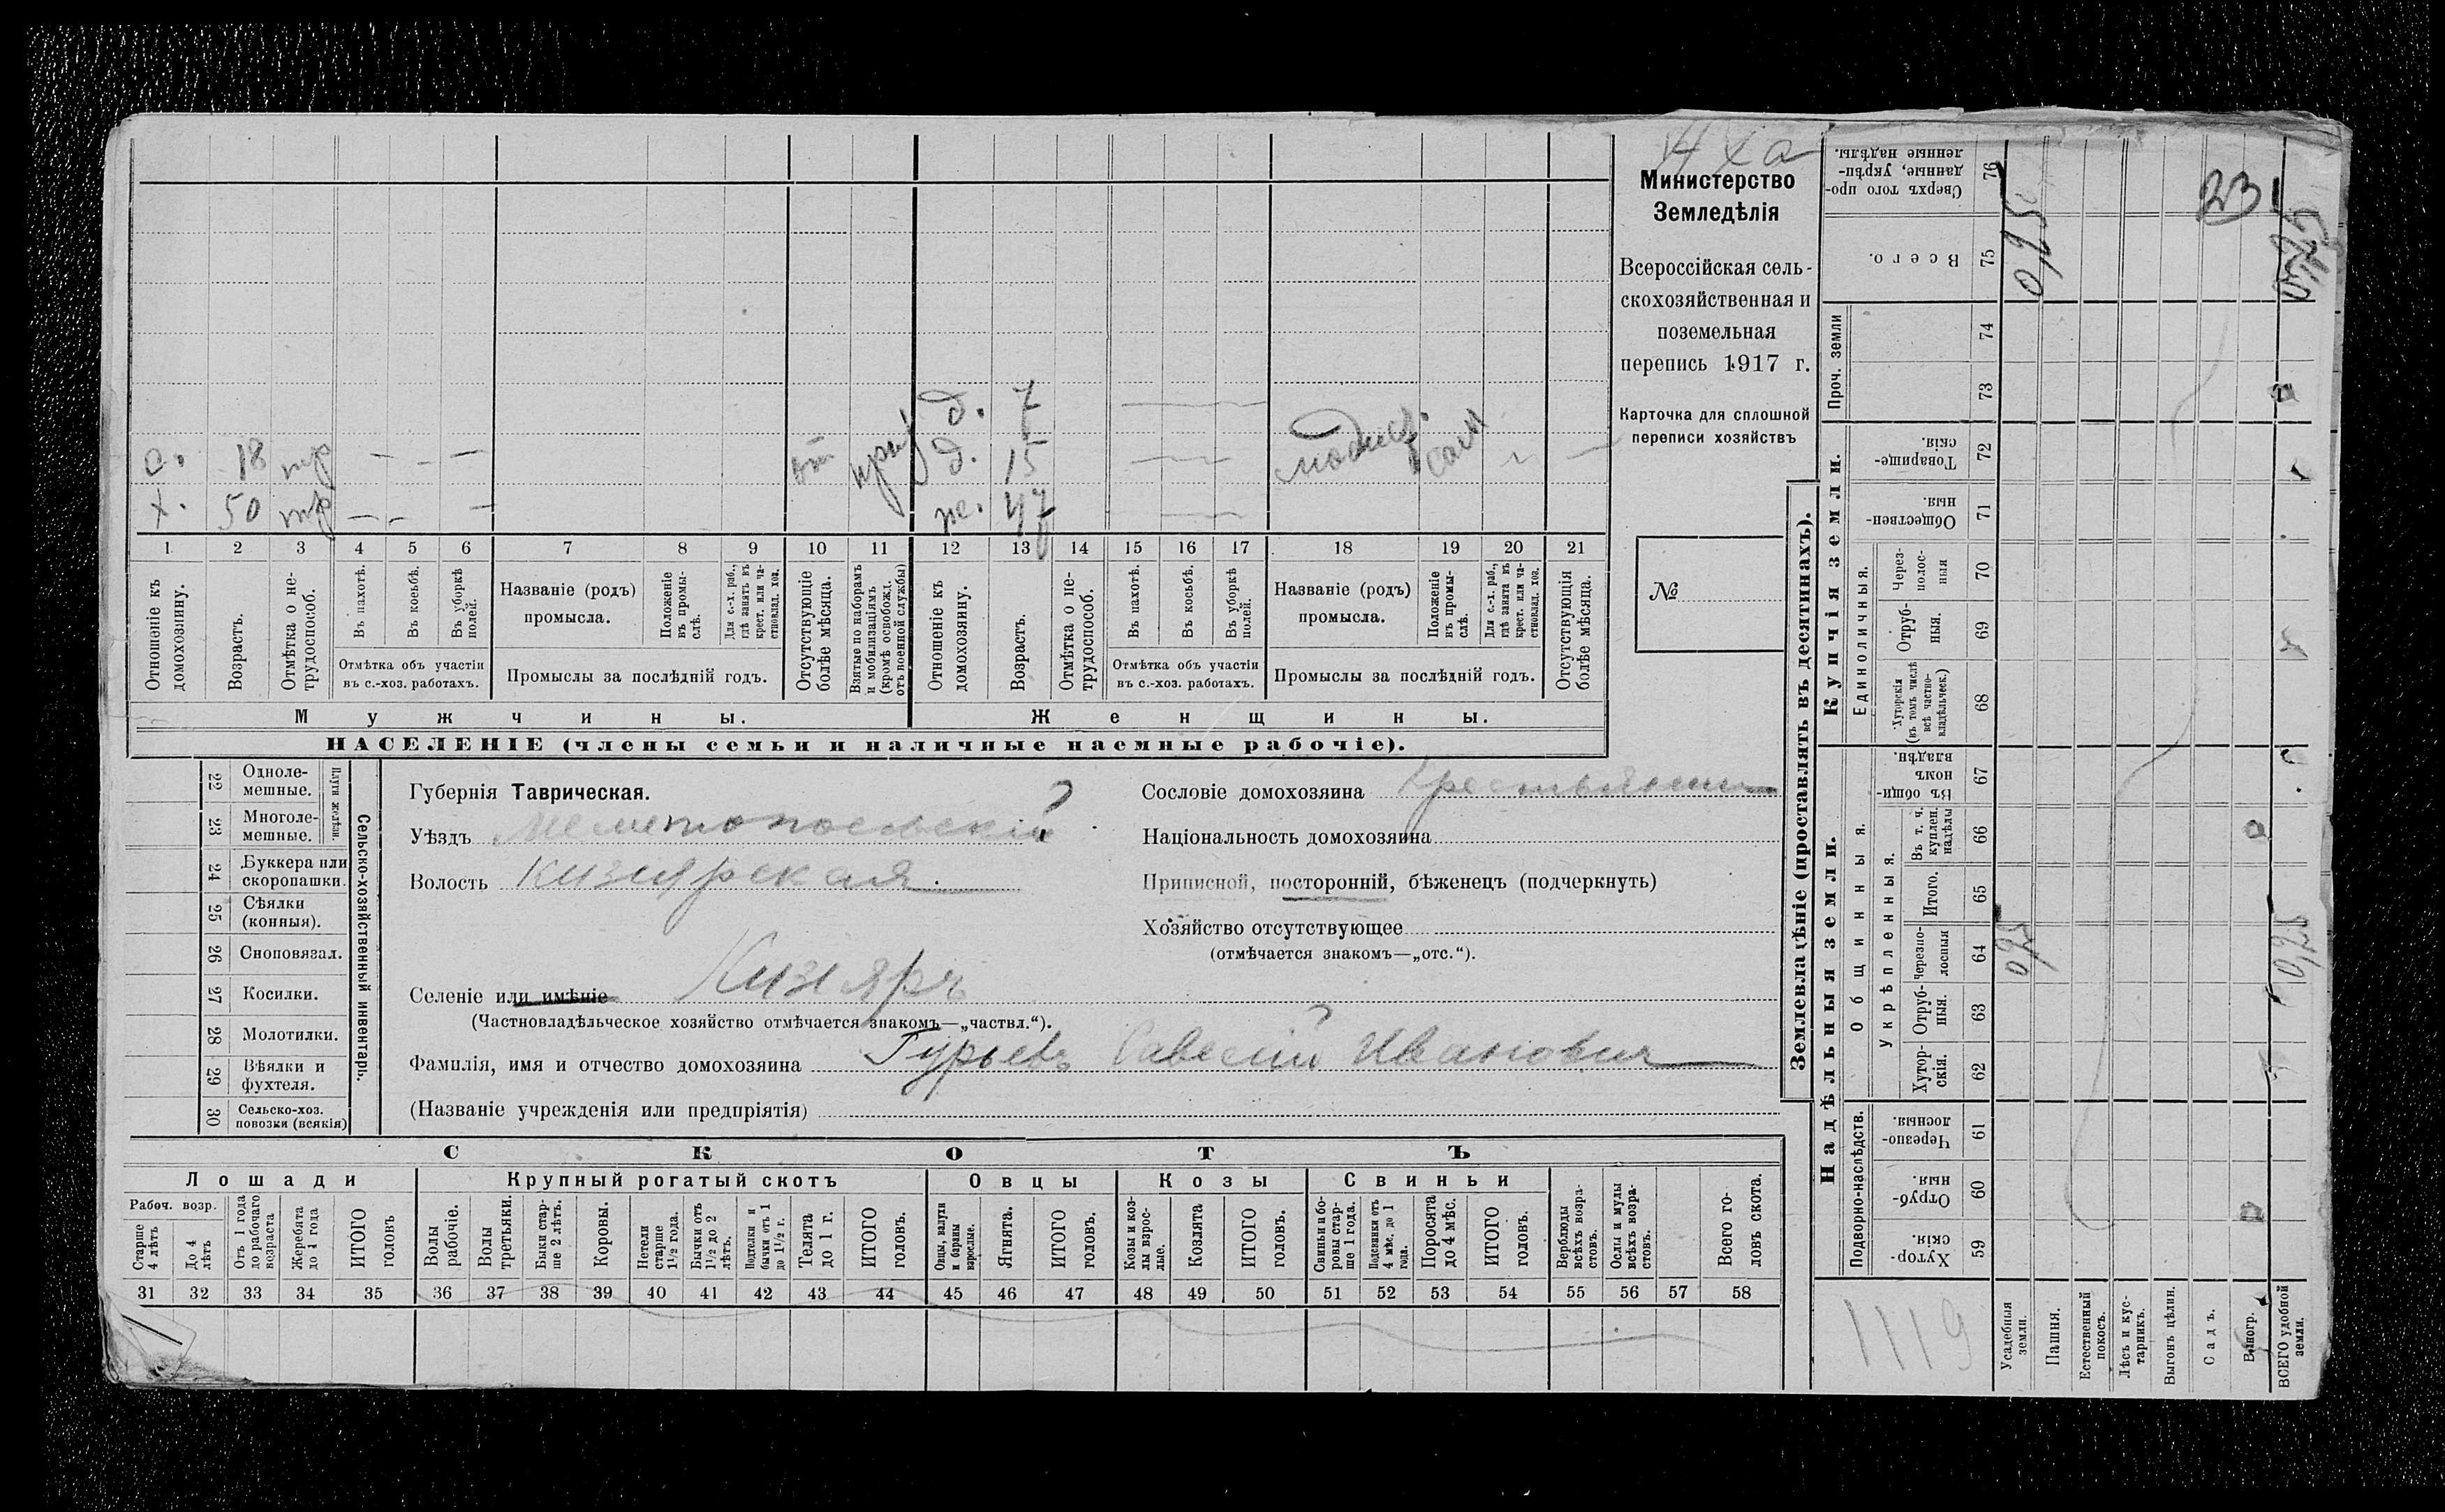 Министерство
Земледѣлія
Всероссійская сель-
скохозяйственная и
поземельная
перепись 1917 г.
Карточка для сплошной
переписи хозяйствъ
№
д. 7
с. 18 тр — - — от д. 15
х. 50 тр — - - ж. 47
1 2 3 4 5 6 7 8 9 10 11 12 13 14 15 16 17 18 19 20 21
Отношеніе къ домохозяину.
Возрастъ.
Отмѣтка о не-трудоспособ.
Въ пахотѣ.
Въ косьбѣ.
Въ уборкѣ полей.
Отмѣтка объ участіи
въ с.-хоз. работахъ.
Названіе (родъ)
промысла.
Положеніе въ промы-слѣ.
Для с.-х. раб., гдѣ занятъ въ крест. или ча-стновлад. хоз.
Промыслы за послѣдній годъ.
Отсутствующіе болѣе мѣсяца.
Взятые по наборамъ и мобилизаціямъ (кромѣ освобожд. отъ военной службы)
Отношеніе къ домохозяину.
Возрастъ.
Отмѣтка о не-трудоспособ.
Въ пахотѣ.
Въ косьбѣ.
Въ уборкѣ полей.
Отмѣтка объ участіи
въ с.-хоз. работахъ.
Названіе (родъ)
промысла.
Положеніе въ промы-слѣ.
Для с.-х. раб., гдѣ занята въ крест. или ча-стновлад. хоз.
Промыслы за послѣдній годъ.
Отсутствующія болѣе мѣсяца.
Мужчины.
Женщины.
НАСЕЛЕНІЕ (члены семьи и наличные наемные рабочіе).
22 Одноле-мешные.
23 Многоле-мешные.
Плуги желѣзн.
24 Буккера или скоропашки.
25 Сѣялки (конныя).
26 Сноповязал.
27 Косилки.
28 Молотилки.
29 Вѣялки и фухтеля.
30 Сельско-хоз. повозки (всякія)
Сельско-хозяйственный инвентарь.
Губернія Таврическая.
Уѣздъ Мелитопольскій
Волость Кизиярская
Селеніе или имѣніе Кизияръ
(Частновладѣльческое хозяйство отмѣчается знакомъ—„частвл.“).
Фамилія, имя и отчество домохозяина Гурьевъ Савелій Ивановичъ
(Названіе учрежденія или предпріятія)
Сословіе домохозяина крестьянинъ
Національность домохозяина
Приписной, посторонній, бѣженецъ (подчеркнуть)
Хозяйство отсутствующее
(отмѣчается знакомъ—„отс.“).
СКОТЪ
Лошади
Рабоч. возр.
Старше 4 лѣтъ
До 4 лѣтъ
Отъ 1 года до рабочаго возраста
Жеребята до 1 года
ИТОГО головъ
Крупный рогатый скотъ
Волы рабочіе.
Волы третьяки.
Быки стар-ше 2 лѣтъ.
Коровы.
Нетели старше 1½ года.
Бычки отъ 1½ до 2 лѣтъ.
Подтелки и бычки отъ 1 до 1½ г.
Телята до 1 г.
ИТОГО головъ.
Овцы
Овцы, валухи и бараны взрослые.
Ягнята.
ИТОГО головъ.
Козы
Козы и коз-лы взрос-лые.
Козлята
ИТОГО головъ.
Свиньи
Свиньи и бо-ровы стар-ше 1 года.
Подсвинки отъ 4 мѣс. до 1 года.
Поросята до 4 мѣс.
ИТОГО головъ.
Верблюды всѣхъ возра-стовъ.
Ослы и мулы всѣхъ возра-стовъ.
Всего го-ловъ скота.
31 32 33 34 35 36 37 38 39 40 41 42 43 44 45 46 47 48 49 50 51 52 53 54 55 56 57 58
Землевладѣніе (проставлять въ десятинахъ).
Сверхъ того про-данные, укрѣп-ленные надѣлы. 76
Всего. 75 0,25
Проч. земли
74
73
Купчія земли.
Товарище-скія. 72
Обществен-ныя. 71
Единоличныя.
Черес-полос-ныя 70
Отруб-ныя. 69
Хуторскія (въ томъ числѣ всѣ частно-владѣльческ.) 68
Надѣльныя земли.
Общинныя.
Въ общи-номъ владѣн. 67
Укрѣпленныя.
Въ т. ч. куплен. надѣлы 66
Итого. 65
Черезпо-лосныя 64 0,25
Отруб-ныя. 63
Хутор-скія. 62
Подворно-наслѣдств.
Черезпо-лосныя 61
Отруб-ныя. 60
Хутор-скія. 59
1119
Усадебныя земли.
Пашня.
Естественный покосъ.
Лѣсъ и кус-тарникъ.
Выгонъ цѣлин.
Садъ.
Виногр.
ВСЕГО удобной земли.
23
0,25
0,25